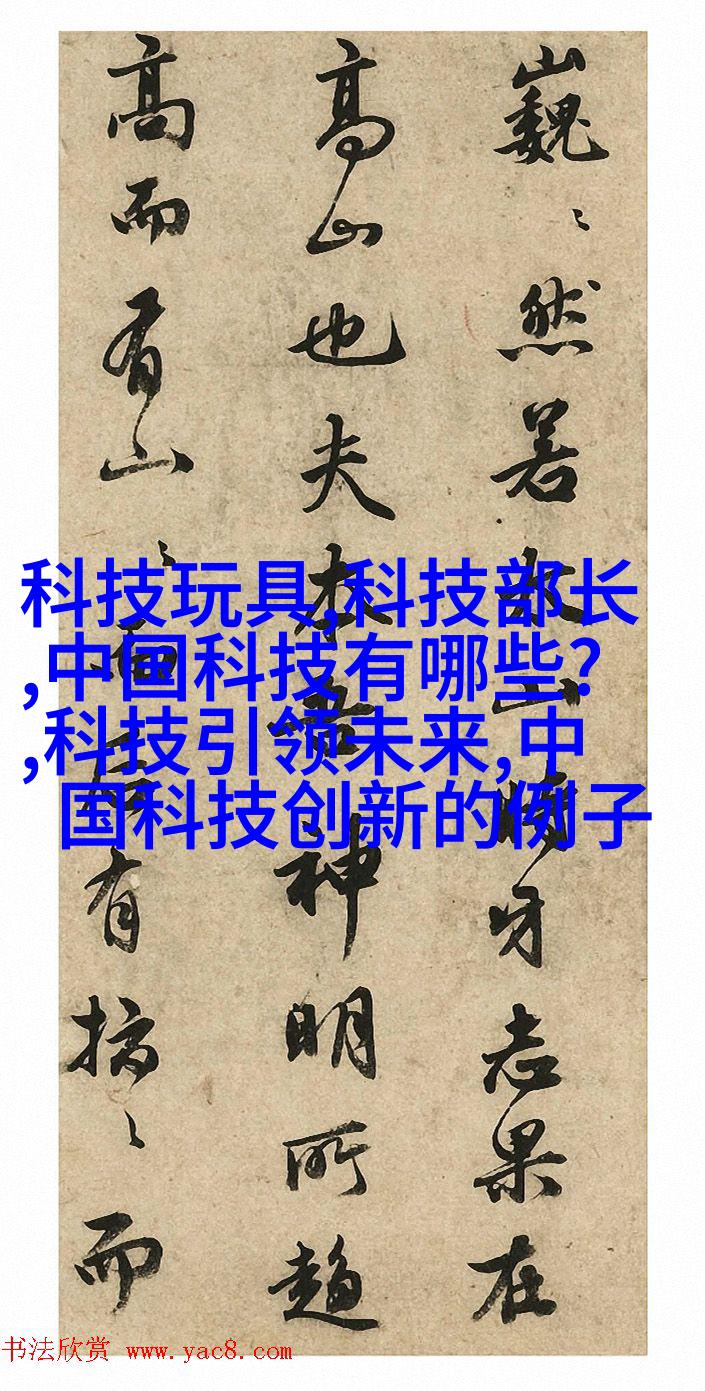 巍〻然若山時牙志果在
高山也夫神明所趨
高而有山〻有搞〻而
科技玩具,科技部长
,中国科技有哪些?
,科技引领未来,中
国科技创新的例子
书法欣赏 www.yac8.com